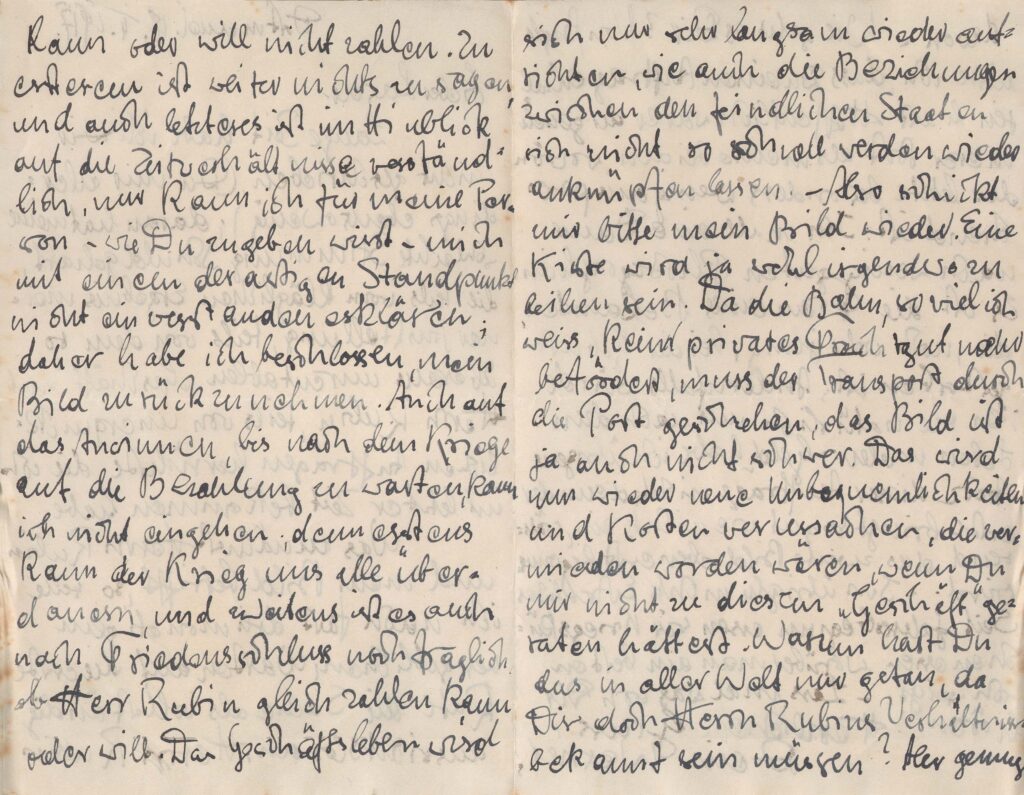 kann oder will nicht zahlen. Zu
ersterem ist weiter nichts zu sagen,
und auch letzteres ist im Hinblick
auf die Zeitverhältnisse verständ-
lich, nur kann ich für meine Per-
son – wie Du zugeben wirst – mich
mit einem derartigen Standpunkt
nicht einverstanden erklären;
daher habe ich beschlossen, mein
Bild zurückzunehmen. Auch auf
das Ansinnen, bis nach dem Kriege
auf die Bezahlung zu warten kann
ich nicht eingehen; denn erstens
kann der Krieg uns alle über-
dauern, und zweitens ist es auch
nach Friedensschluss noch fraglich
ob Herr Rubin gleich zahlen kann
oder will. Das Geschäftsleben wird
sich nur sehr langsam wieder auf-
richten, wie auch die Beziehungen
zwischen den feindlichen Staaten
sich nicht so schnell werden wieder
anknüpfen lassen. – Also schickt
mir bitte mein Bild wieder. Eine
Kiste wird ja wohl irgendwo zu
leihen sein. Da die Bahn, soviel ich
weiss, kein privates Frachtgut mehr
befördert, muss der Transport durch
die Post geschehen, das Bild ist
ja auch nicht schwer. Das wird
nun wieder neue Unbequemlichkeiten
und Kosten verursachen, die ver-
mieden worden wären, wenn Du
mir nicht zu diesem „Geschäft" ge-
raten hättest. Warum hast Du
das in aller Welt nur getan, da
Dir doch Herrn Rubins Verhältnisse
bekannt sein müssen? genug